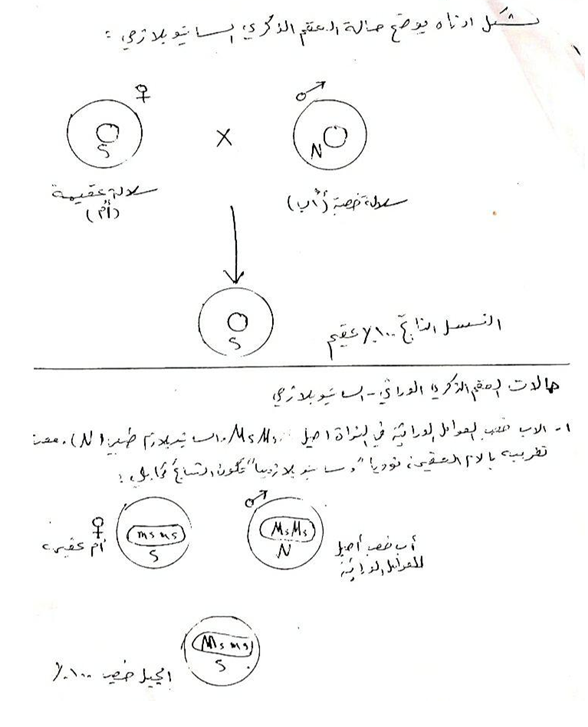 شكل ادناه يوضح حالة العقم الذكري السايتوبلازمي :
١
♀ ♂
S × N
سلالة عقيمة (أم)
سلالة خصبة (أب)
S
النسل الناتج ١٠٠٪ عقيم
حالات العقم الذكري الوراثي - السايتوبلازمي
١- الاب خصب العوامل الوراثية في النواة اصيل MsMs والسايتوبلازم طبيعي (N). عند
تضريبه بالام العقيمة نوويا" وسايتوبلازميا" تكون النتائج كما يلي :
♀ ♂
أم عقيمة
msms
S
MsMs
N
أب خصب أصيل
للعوامل الوراثية
Msms
S
الجيل خصب ١٠٠٪